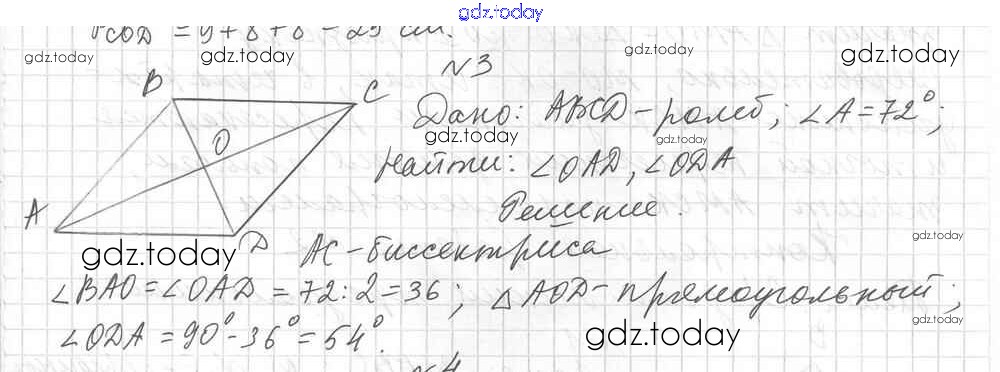 gdz.today
PCOD = 9+8+8=25 см.
gdz.today gdz.today gdz.today gdz.today
№3
B C
Дано: ABCD-ромб; ∠A=72°;
gdz.today gdz.today
O
Найти: ∠OAD, ∠ODA
A
Решение.
D
gdz.today gdz.today
AC-биссектриса
∠BAO=∠OAD=72:2=36; △AOD-прямоугольный;
gdz.today
∠ODA=90°-36°=54°.
gdz.today
№4